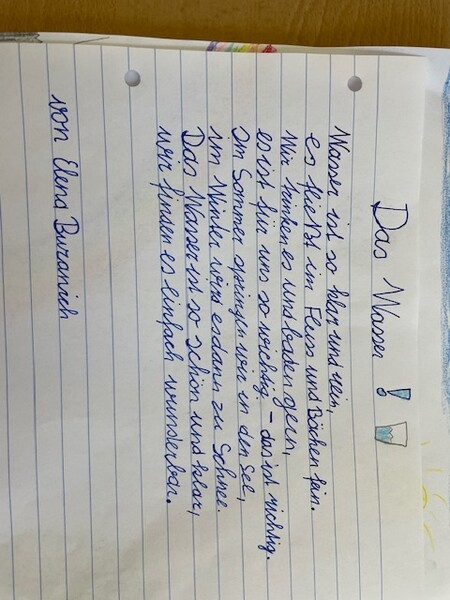 Das Wasser!
Wasser ist so klar und rein,
es fließt in Fluss und Bächen fein.
Wir trinken es und baden gern,
es ist für uns so wichtig – das ist richtig.
Im Sommer springen wir in den See,
im Winter wird es dann zu Schnee.
Das Wasser ist so schön und klar,
wir finden es einfach wunderbar.
von Elena Buranich